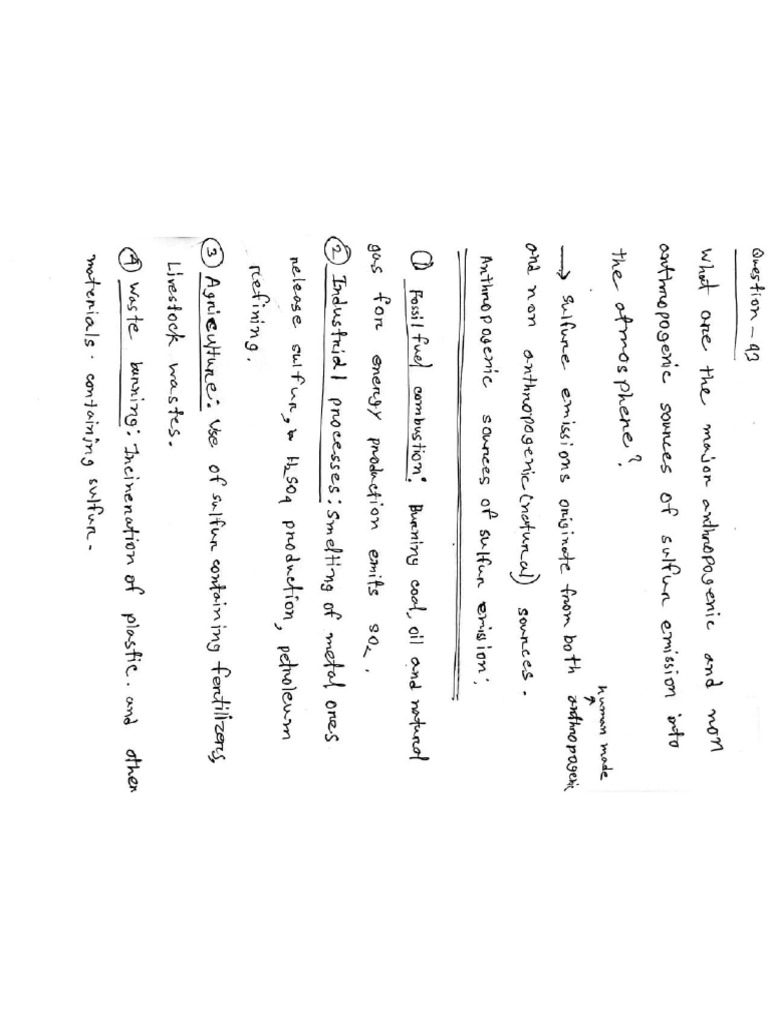 Question - 93
What are the major anthropogenic and non
anthropogenic sources of sulfur emission into
the atmosphere?
human made
→ Sulfure emissions originate from both anthropogenic
and non anthropogenic (natural) sources.
Anthropogenic sources of sulfur emission:
① Fossil fuel combustion: Burning coal, oil and natural
gas for energy production emits SO2.
② Industrial processes: Smelting of metal ores
release sulfur, H2SO4 production, petroleum
refining.
③ Agriculture: Use of sulfur containing fertilizers,
Livestock wastes.
④ Waste burning: Incineration of plastic. and other
materials. containing sulfur.